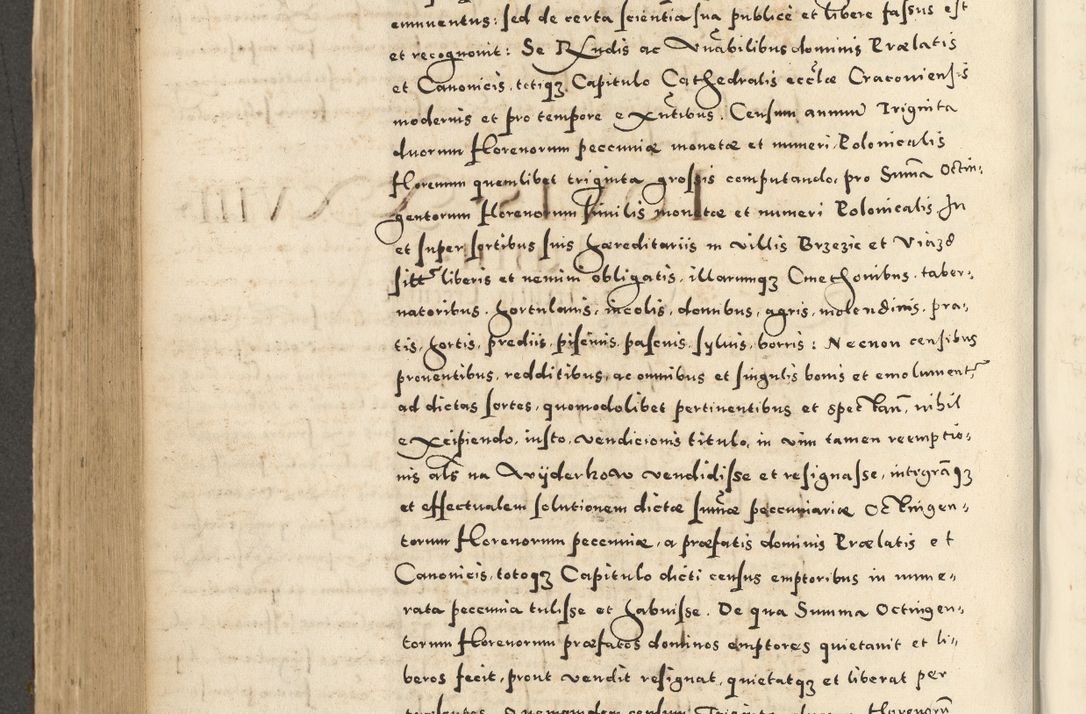 emuventus: sed de certa scientia sua publicè et libere fassus est
et recognovit: Se Rndis ac Vnãbilibus dominis Prælatis
et Canonicis, totiqꝫ Capitulo Cathedralis ecctæ Cracoviensis
modernis et pro tempore exñtibus. Censum annuũ Triginta
duorum florenorum peccuniæ monetæ et numeri Polonicalis
florenum quemlibet triginta grossis computando, pro Summa Octin,
gentorum florenorum similis monetæ et numeri Polonicalis In
et super sortibus suis hæreditariis in villis Brzezie et Viazd
sitt. liberis et nemini obligatis, illarumqꝫ Cmethonibus, taber,
natoribus, hortulanis, incolis, domibus, agris, molendinis, pra,
tis, hortis, prediis, piscinis, pascuis, sylvis, borris: Necnon censibus
proventibus, redditibus, ac omnibus et singulis bonis et emolument.
ad dictas sortes, quomodolibet pertinentibus et spectan, nihil
excipiendo, iusto, vendicionis titulo, in vim tamen reemptio,
nis als na Wyderkow vendidisse et resignasse, integramqꝫ
et effectualem solutionem dictæ summæ peccuniariæ Octingen,
torum florenorum peccuniæ, a præfatis dominis Prælatis et
Canonicis, totoqꝫ Capitulo dicti census emptoribus in nume,,
rata peccunia tulisse et habuisse. De qua Summa Octingen,
torum florenorum præfatos dominos emptores quietavit et li,,
beros fecit, prout vendit resignat, quietatqꝫ et liberat per